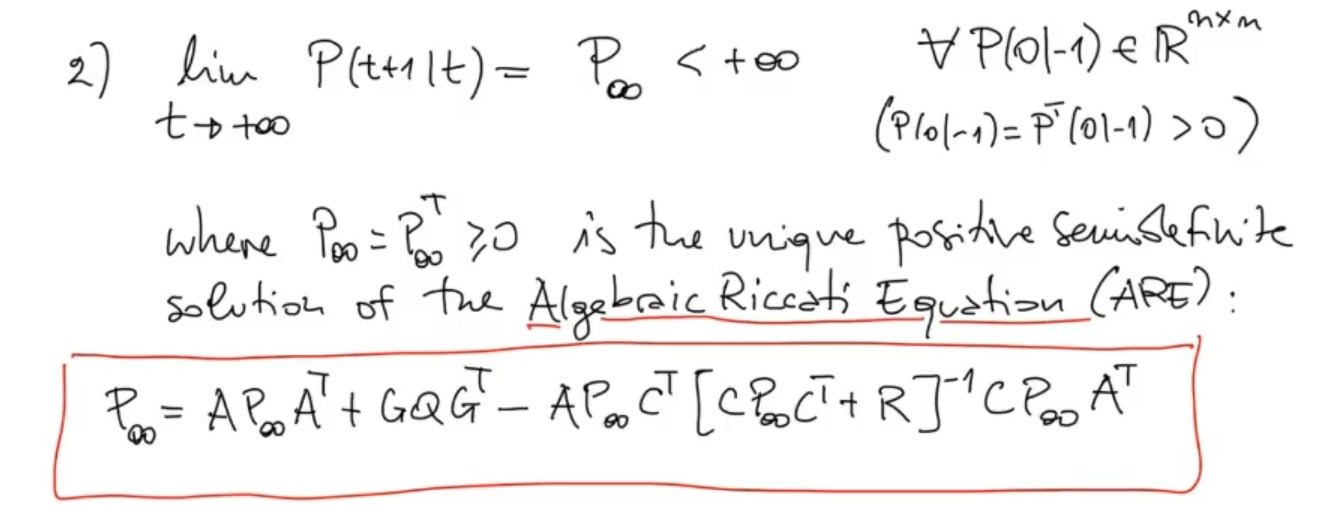 2) lim P(t+1|t) = P∞ < +∞ ∀ P(0|-1) ∈ ℝⁿˣⁿ
t→+∞ (P(0|-1) = Pᵀ(0|-1) > 0)
where P∞ = P∞ᵀ ≥ 0 is the unique positive semidefinite
solution of the Algebraic Riccati Equation (ARE):
P∞ = A P∞ Aᵀ + G Q Gᵀ − A P∞ Cᵀ [C P∞ Cᵀ + R]⁻¹ C P∞ Aᵀ